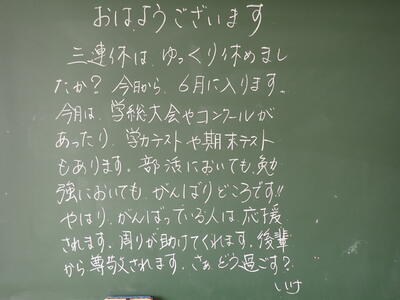 おはようございます
三連休は、ゆっくり休めまし
たか？今日から、６月に入ります。
今月は、学総大会やコンクールが
あったり、学力テストや期末テスト
もあります。部活においても、勉
強においても、がんばりどころです!!
やはり、がんばっている人は、応援
されます。周りが助けてくれます。後輩
から尊敬されます。さぁ、どう過ごす？
いけ